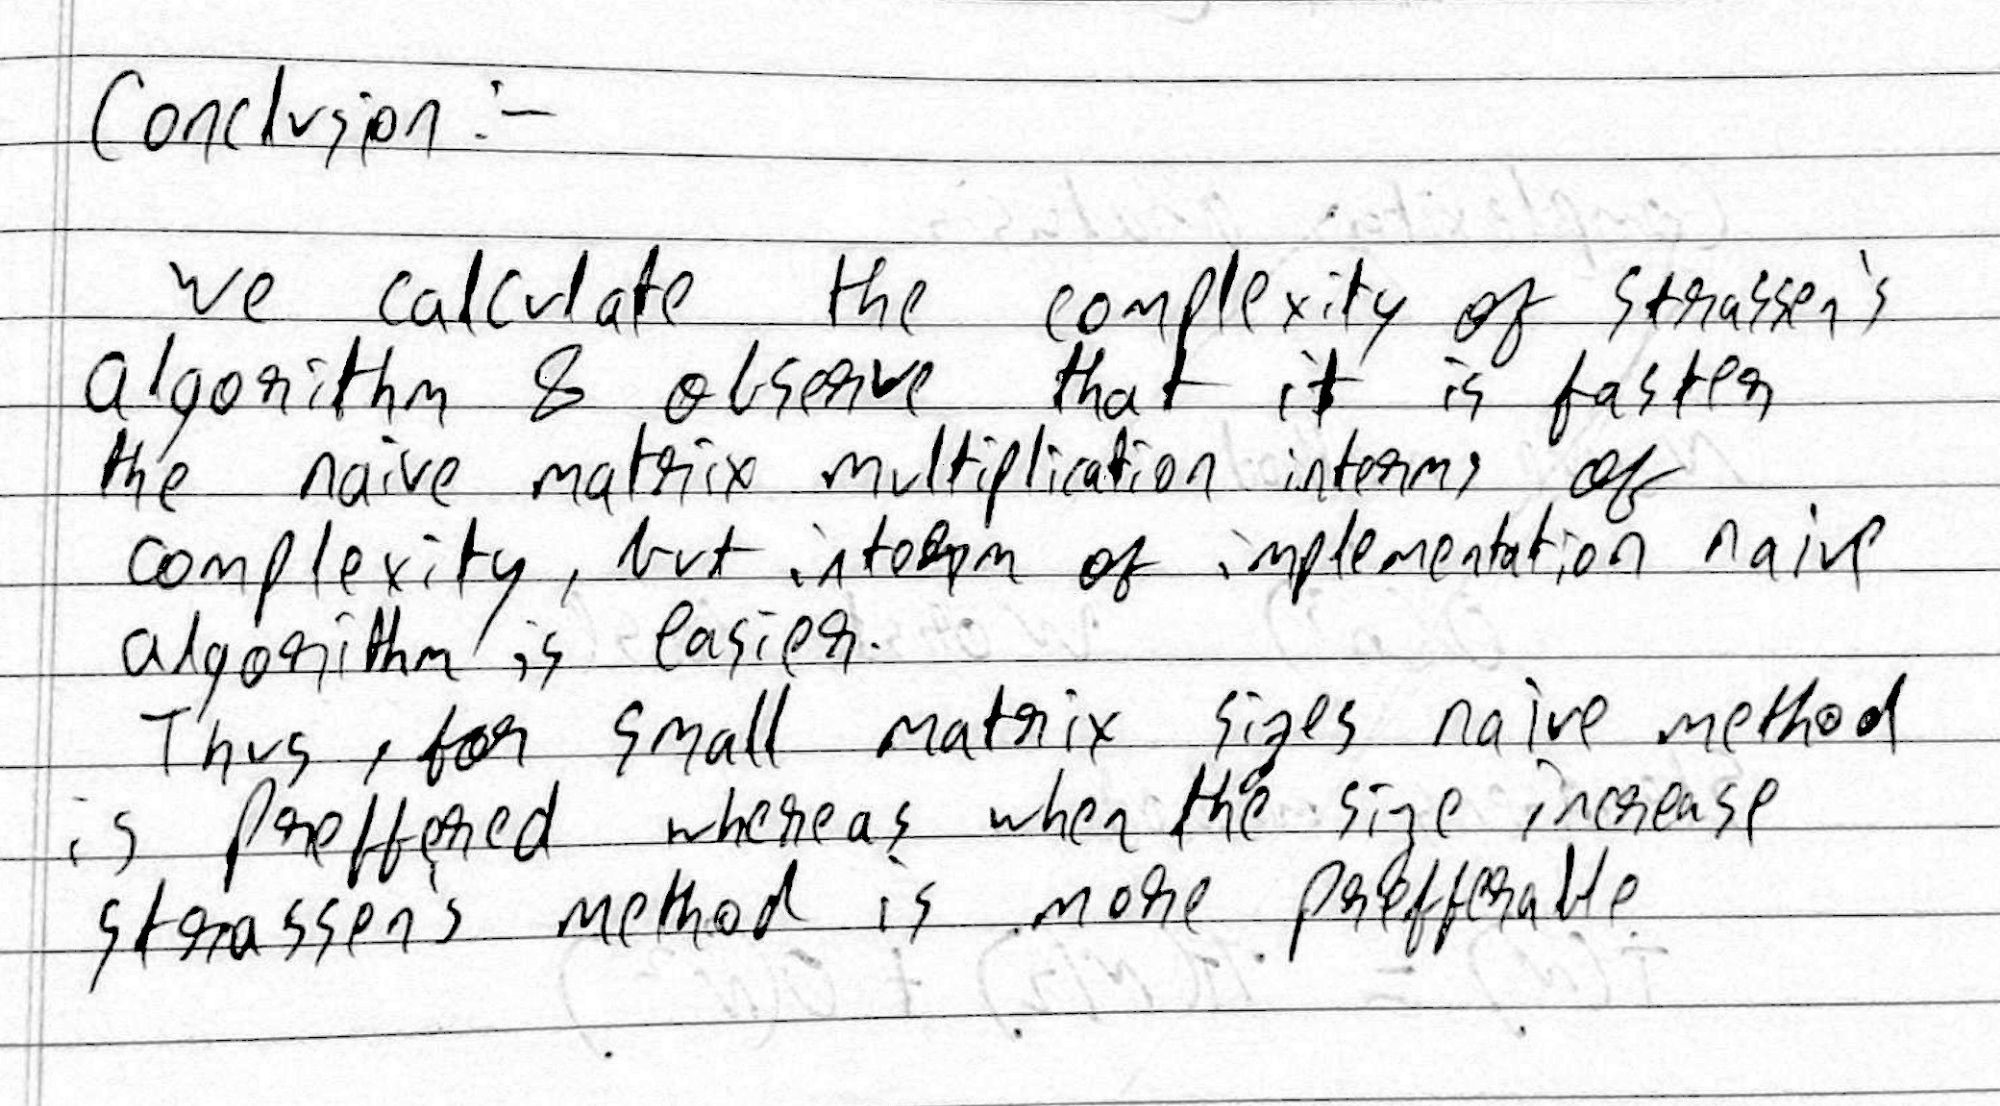 Conclusion :-
We calculate the complexity of strassen's
algorithm & observe that it is faster
the naive matrix multiplication interms of
complexity, but interm of implementation naive
algorithm is easier.
Thus, for small matrix sizes naive method
is preffered whereas when the size increase
strassen's method is more prefferable.